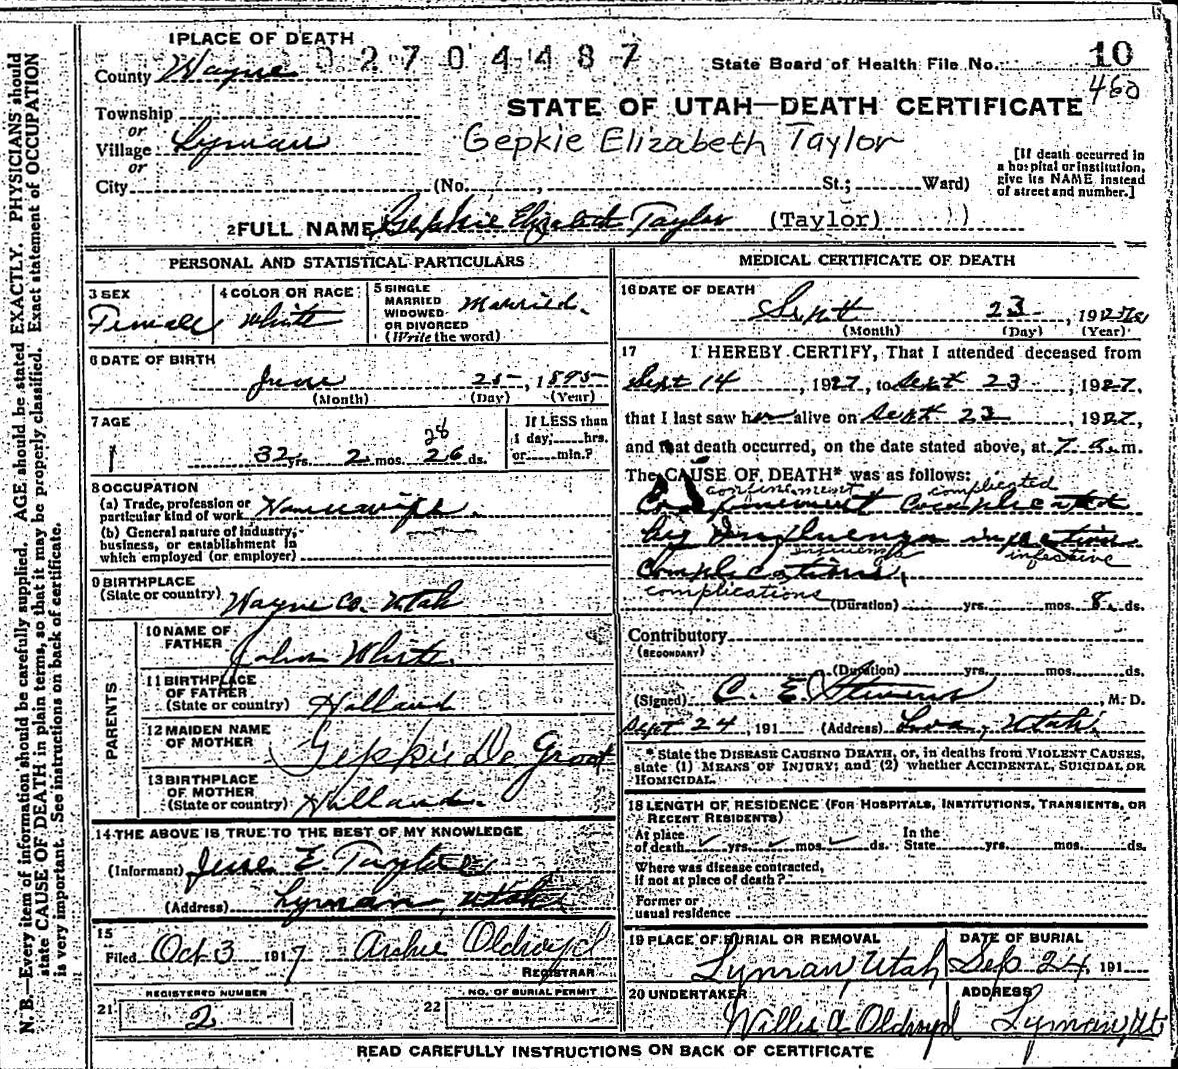 1 PLACE OF DEATH
0 2 7 0 4 4 8 7
State Board of Health File No. 10
460
County Wayne
STATE OF UTAH—DEATH CERTIFICATE
Township
or
Village Lyman
Gepkie Elizabeth Taylor
or
City (No. , St.; Ward)
[If death occurred in
a hospital or institution,
give its NAME instead
of street and number.]
2 FULL NAME Gepkie Elizabeth Taylor (Taylor)
PERSONAL AND STATISTICAL PARTICULARS
3 SEX
Female
4 COLOR OR RACE
White
5 SINGLE
MARRIED
WIDOWED
OR DIVORCED
(Write the word)
Married.
6 DATE OF BIRTH
June 25, 1895
(Month) (Day) (Year)
7 AGE
28
32 yrs. 2 mos. 26 ds.
If LESS than
1 day, hrs.
or min.?
8 OCCUPATION
(a) Trade, profession or
particular kind of work Housewife.
(b) General nature of industry,
business, or establishment in
which employed (or employer)
9 BIRTHPLACE
(State or country) Wayne Co. Utah
PARENTS
10 NAME OF
FATHER John White.
11 BIRTHPLACE
OF FATHER
(State or country) Holland
12 MAIDEN NAME
OF MOTHER Geppkie De Groot
13 BIRTHPLACE
OF MOTHER
(State or country) Holland.
14 THE ABOVE IS TRUE TO THE BEST OF MY KNOWLEDGE
(Informant) Jesse E. Taylor
(Address) Lyman, Utah.
15
Filed Oct 3 1917 Archie Oldroyd
REGISTRAR
REGISTERED NUMBER
21 2
NO. OF BURIAL PERMIT
22
MEDICAL CERTIFICATE OF DEATH
16 DATE OF DEATH
Sept 23, 1927
(Month) (Day) (Year)
17 I HEREBY CERTIFY, That I attended deceased from
Sept 14, 1927, to Sept 23, 1927,
that I last saw her alive on Sept 23, 1927,
and that death occurred, on the date stated above, at 7 a.m.
The CAUSE OF DEATH* was as follows:
confinement complicated
Confinement complicated
by Influenza infective
influenza infective
complications,
complications
(Duration) yrs. mos. 8 ds.
Contributory
(SECONDARY)
(Duration) yrs. mos. ds.
(Signed) C. E. Stevens, M. D.
Sept 24, 191 (Address) Loa, Utah.
* State the DISEASE CAUSING DEATH, or, in deaths from VIOLENT CAUSES,
state (1) MEANS OF INJURY; and (2) whether ACCIDENTAL, SUICIDAL OR
HOMICIDAL.
18 LENGTH OF RESIDENCE (FOR HOSPITALS, INSTITUTIONS, TRANSIENTS, OR
RECENT RESIDENTS)
At place
of death yrs. mos. ds.
In the
State yrs. mos. ds.
Where was disease contracted,
if not at place of death?
Former or
usual residence
19 PLACE OF BURIAL OR REMOVAL
Lyman Utah
DATE OF BURIAL
Sep 24, 191
20 UNDERTAKER
Willis A Oldroyd
ADDRESS
Lyman Ut
READ CAREFULLY INSTRUCTIONS ON BACK OF CERTIFICATE
N. B.—Every item of information should be carefully supplied. AGE should be stated EXACTLY. PHYSICIANS should
state CAUSE OF DEATH in plain terms, so that it may be properly classified. Exact statement of OCCUPATION
is very important. See instructions on back of certificate.